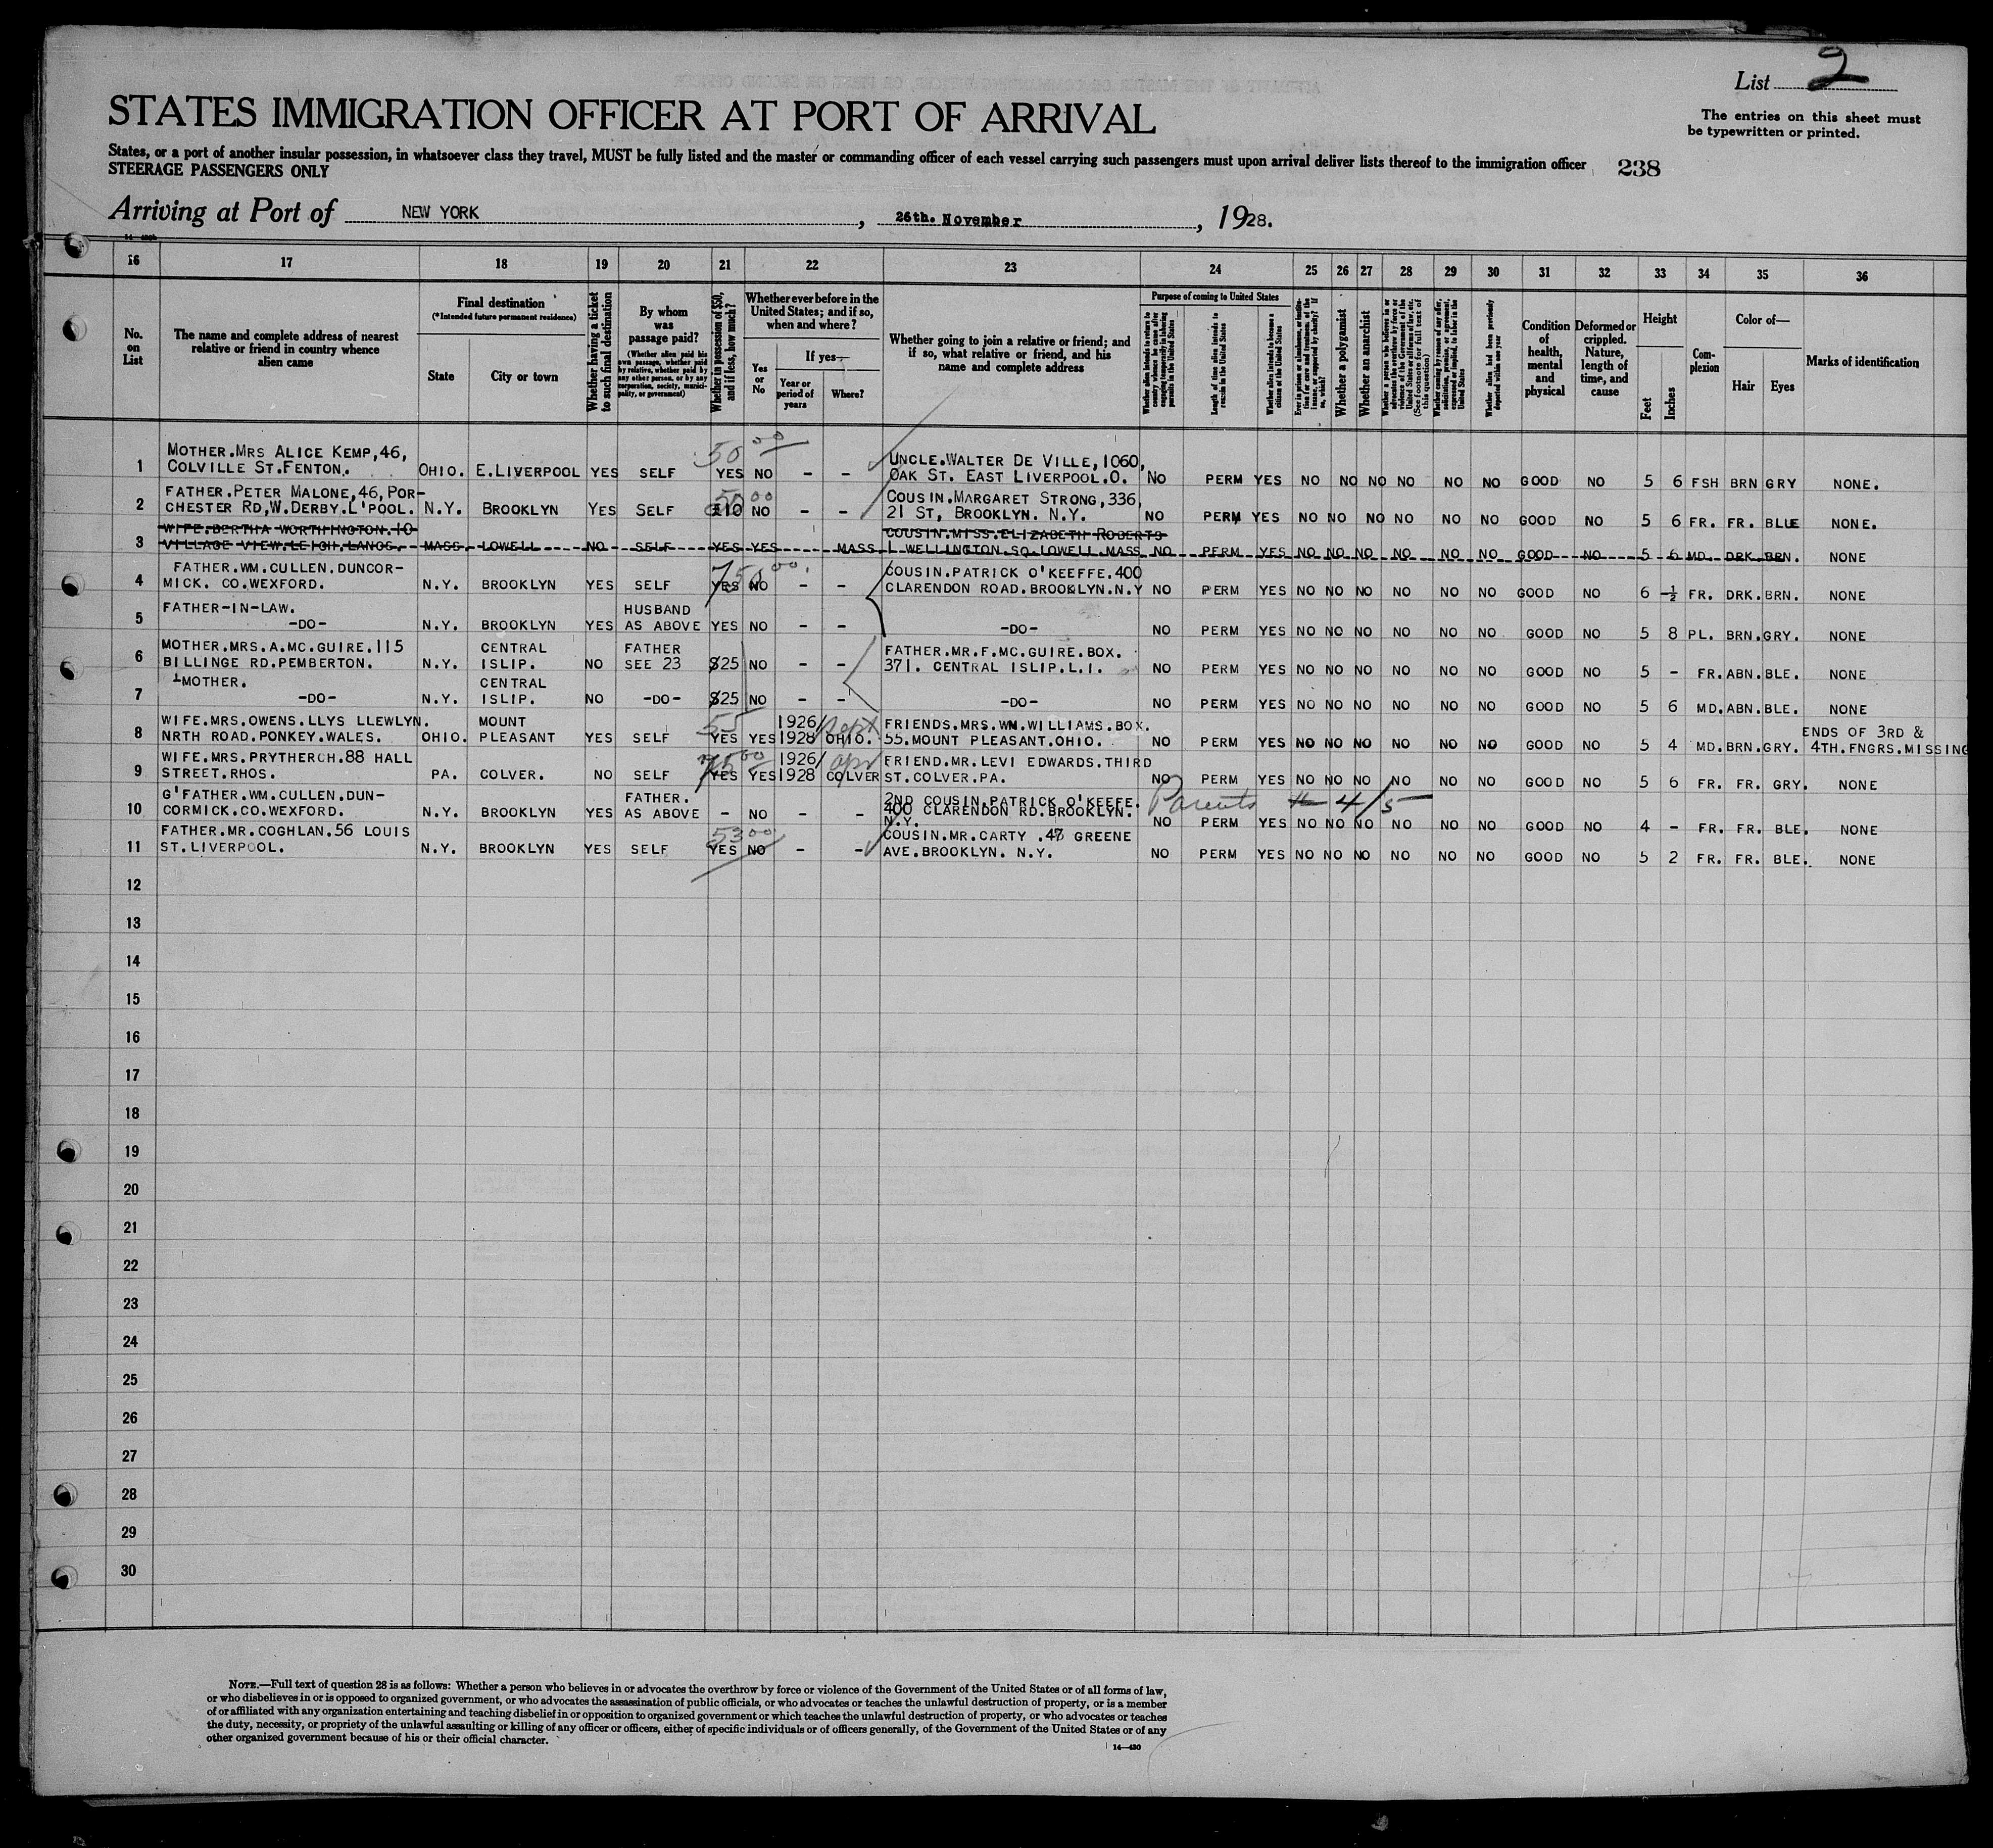 List 2
The entries on this sheet must
be typewritten or printed.
STATES IMMIGRATION OFFICER AT PORT OF ARRIVAL
States, or a port of another insular possession, in whatsoever class they travel, MUST be fully listed and the master or commanding officer of each vessel carrying such passengers must upon arrival deliver lists thereof to the immigration officer
STEERAGE PASSENGERS ONLY
238
Arriving at Port of NEW YORK, 26th. November, 1928.
16 17 18 19 20 21 22 23 24 25 26 27 28 29 30 31 32 33 34 35 36
No. on List
The name and complete address of nearest relative or friend in country whence alien came
Final destination
(*Intended future permanent residence)
State
City or town
Whether having a ticket to such final destination
By whom was passage paid?
(Whether alien paid his own passage, whether paid by relative, whether paid by any other person, or by any corporation, society, municipality, or government)
Whether in possession of $50, and if less, how much?
Whether ever before in the United States; and if so, when and where?
Yes or No
If yes—
Year or period of years
Where?
Whether going to join a relative or friend; and if so, what relative or friend, and his name and complete address
Purpose of coming to United States
Whether alien intends to return to country whence he came after engaging temporarily in laboring pursuits in the United States
Length of time alien intends to remain in the United States
Whether alien intends to become a citizen of the United States
Ever in prison or almshouse, or institution for care and treatment of the insane, or supported by charity? If so, which?
Whether a polygamist
Whether an anarchist
Whether a person who believes in or advocates the overthrow by force or violence of the Government of the United States or all forms of law, etc. (See footnote for full text of this question)
Whether coming by reason of any offer, solicitation, promise, or agreement, expressed or implied, to labor in the United States
Whether alien had been previously deported within one year
Condition of health, mental and physical
Deformed or crippled. Nature, length of time, and cause
Height
Feet
Inches
Complexion
Color of—
Hair
Eyes
Marks of identification
50 00
MOTHER.MRS ALICE KEMP,46,
1 COLVILLE ST.FENTON. OHIO. E.LIVERPOOL YES SELF YES NO - - UNCLE.WALTER DE VILLE,1060,
OAK ST. EAST LIVERPOOL.O. NO PERM YES NO NO NO NO NO NO GOOD NO 5 6 FSH BRN GRY NONE.
FATHER.PETER MALONE,46,POR-
2 CHESTER RD,W.DERBY.L'POOL. N.Y. BROOKLYN YES SELF £10 50 00 NO - - COUSIN.MARGARET STRONG,336,
21 ST, BROOKLYN. N.Y. NO PERM YES NO NO NO NO NO NO GOOD NO 5 6 FR. FR. BLUE NONE.
WIFE.BERTHA WORTHINGTON.10
3 VILLAGE VIEW.LEIGH.LANCS. MASS. LOWELL NO SELF YES YES MASS COUSIN.MISS.ELIZABETH ROBERTS
1 WELLINGTON.SQ.LOWELL.MASS NO PERM YES NO NO NO NO NO NO GOOD NO 5 6 MD. DRK.BRN. NONE
FATHER.WM.CULLEN.DUNCOR-
4 MICK. CO.WEXFORD. N.Y. BROOKLYN YES SELF YES 750 00 NO - - COUSIN.PATRICK O'KEEFFE.400
CLARENDON ROAD.BROOKLYN.N.Y NO PERM YES NO NO NO NO NO NO GOOD NO 6 -½ FR. DRK.BRN. NONE
FATHER-IN-LAW. HUSBAND
5 -DO- N.Y. BROOKLYN YES AS ABOVE YES NO - - -DO- NO PERM YES NO NO NO NO NO NO GOOD NO 5 8 PL. BRN.GRY. NONE
MOTHER.MRS.A.MC.GUIRE.115 CENTRAL FATHER FATHER.MR.F.MC.GUIRE.BOX.
6 BILLINGE RD.PEMBERTON. N.Y. ISLIP. NO SEE 23 $25 NO - - 371. CENTRAL ISLIP.L.I. NO PERM YES NO NO NO NO NO NO GOOD NO 5 - FR.ABN.BLE. NONE
MOTHER. CENTRAL
7 -DO- N.Y. ISLIP. NO -DO- $25 NO - - -DO- NO PERM YES NO NO NO NO NO NO GOOD NO 5 6 MD.ABN.BLE. NONE
WIFE.MRS.OWENS.LLYS LLEWLYN. MOUNT 55 1926/ Sept FRIENDS.MRS.WM.WILLIAMS.BOX. ENDS OF 3RD &
8 NRTH ROAD.PONKEY.WALES. OHIO. PLEASANT YES SELF YES YES 1928 OHIO. 55.MOUNT PLEASANT.OHIO. NO PERM YES NO NO NO NO NO NO GOOD NO 5 4 MD.BRN.GRY. 4TH.FNGRS.MISSING
WIFE.MRS.PRYTHERCH.88 HALL 75 00 1926/ apr FRIEND.MR.LEVI EDWARDS.THIRD
9 STREET.RHOS. PA. COLVER. NO SELF YES YES 1928 COLVER ST.COLVER.PA. NO PERM YES NO NO NO NO NO NO GOOD NO 5 6 FR. FR. GRY. NONE
G'FATHER.WM.CULLEN.DUN- FATHER. 2ND COUSIN.PATRICK O'KEEFE. Parents # 4/5
10 CORMICK.CO.WEXFORD. N.Y. BROOKLYN YES AS ABOVE - NO - 400 CLARENDON RD.BROOKLYN.
N.Y. NO PERM YES NO NO NO NO NO NO GOOD NO 4 - FR. FR. BLE. NONE
FATHER.MR.COGHLAN.56 LOUIS 53 00 COUSIN.MR.CARTY .47 GREENE
11 ST.LIVERPOOL. N.Y. BROOKLYN YES SELF YES NO - - AVE.BROOKLYN. N.Y. NO PERM YES NO NO NO NO NO NO GOOD NO 5 2 FR. FR. BLE. NONE
12
13
14
15
16
17
18
19
20
21
22
23
24
25
26
27
28
29
30
NOTE.—Full text of question 28 is as follows: Whether a person who believes in or advocates the overthrow by force or violence of the Government of the United States or of all forms of law,
or who disbelieves in or is opposed to organized government, or who advocates the assassination of public officials, or who advocates or teaches the unlawful destruction of property, or is a member
of or affiliated with any organization entertaining and teaching disbelief in or opposition to organized government or which teaches the unlawful destruction of property, or who advocates or teaches
the duty, necessity, or propriety of the unlawful assaulting or killing of any officer or officers, either of specific individuals or of officers generally, of the Government of the United States or of any
other organized government because of his or their official character.
14—430